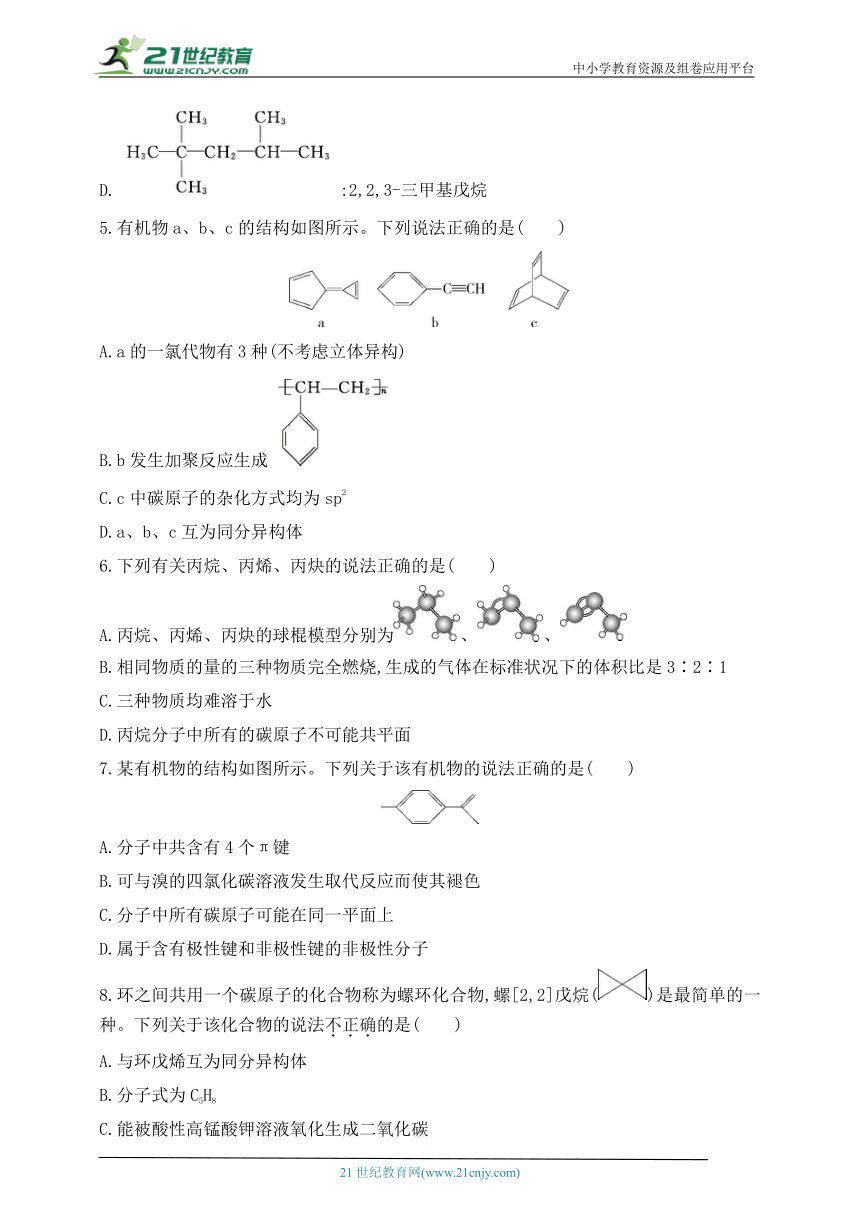 21世纪教育
www.21cnjy.com
中小学教育资源及组卷应用平台
CH₃ CH₃
H₃C—C—CH₂—CH—CH₃
D. CH₃ :2,2,3-三甲基戊烷
5.有机物a、b、c的结构如图所示。下列说法正确的是( )
C≡CH
a b c
A.a的一氯代物有3种(不考虑立体异构)
[CH—CH₂]n
B.b发生加聚反应生成
C.c中碳原子的杂化方式均为sp²
D.a、b、c互为同分异构体
6.下列有关丙烷、丙烯、丙炔的说法正确的是( )
A.丙烷、丙烯、丙炔的球棍模型分别为 、 、
B.相同物质的量的三种物质完全燃烧,生成的气体在标准状况下的体积比是3∶2∶1
C.三种物质均难溶于水
D.丙烷分子中所有的碳原子不可能共平面
7.某有机物的结构如图所示。下列关于该有机物的说法正确的是( )
A.分子中共含有4个π键
B.可与溴的四氯化碳溶液发生取代反应而使其褪色
C.分子中所有碳原子可能在同一平面上
D.属于含有极性键和非极性键的非极性分子
8.环之间共用一个碳原子的化合物称为螺环化合物,螺[2,2]戊烷( )是最简单的一
种。下列关于该化合物的说法不正确的是( )
A.与环戊烯互为同分异构体
B.分子式为C₅H₈
C.能被酸性高锰酸钾溶液氧化生成二氧化碳
21世纪教育网(www.21cnjy.com)